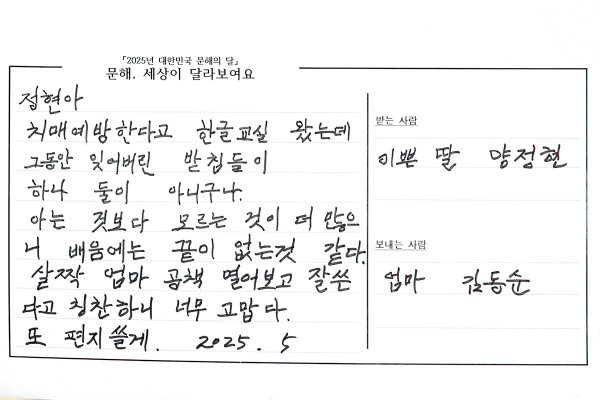 「2025년 대한민국 문해의 달」
문해. 세상이 달라보여요
정현아
치매예방한다고 한글교실 왔는데
그동안 잊어버린 받침들이
하나 둘이 아니구나.
아는 것보다 모르는 것이 더 많으
니 배움에는 끝이 없는것 같다.
살짝 엄마 공책 열어보고 잘쓴
다고 칭찬하니 너무 고맙다.
또 편지쓸게. 2025. 5
받는 사람
이쁜 딸 양정현
보내는 사람
엄마 김동순